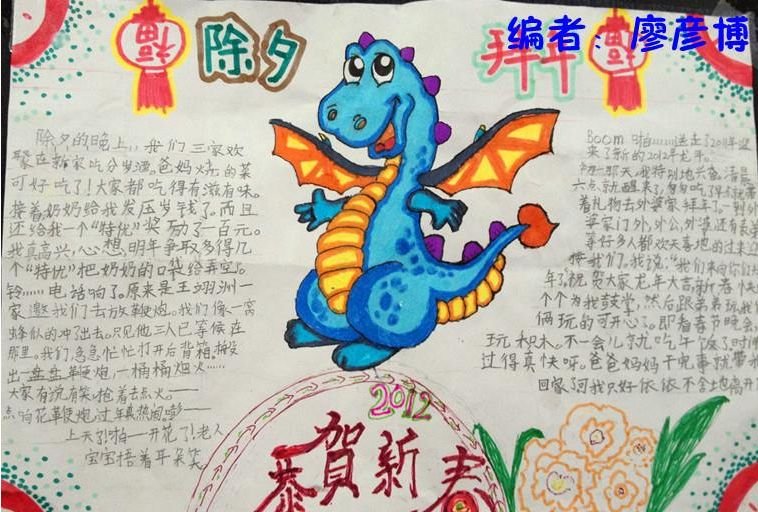 编者：廖彦博
福
除夕
拜年
福
除夕的晚上，我们三家欢
聚在新家吃分岁酒。爸妈烧的菜
可好吃了！大家都吃得有滋有味。
接着奶奶给我发压岁钱了。而且
还给我一个“特优”奖励了一百元。
我真高兴，心想，明年争取多得几
个“特优”把奶奶的口袋给弄空。
铃……电话响了。原来是王翊洲一
家邀我们去放鞭炮。我们像一窝
蜂似的冲了出去。只见他三人已等候在
那里。我们急急忙忙打开后背箱，搬
出一盘盘鞭炮，一桶桶烟火……
大家有说有笑，抢着去点火。
点响花草鞭炮，过年真热闹。嘭——
上天了！啪——开花了！老人
宝宝捂着耳朵笑
Boom 啪……送走了2011年迎
来了新的2012年龙年。
初一那天，我特别地兴奋，清晨
六点就醒来了，匆匆吃了早
着礼物去外婆家拜年了。一到外
婆家门外，外公，外婆还有表
等好多人都欢天喜地的过来迎
接我们。我说：“我们来向你们
年了，祝贺大家龙年大吉，新春快
个个为我鼓掌，然后跟弟弟玩
俩玩的可开心了。即看春节晚会，
玩积木。不一会儿就吃午饭了时
过得真快呀。爸爸妈妈干完事就带我
回家了，可我只好依依不舍地离开了
2012
恭贺新春